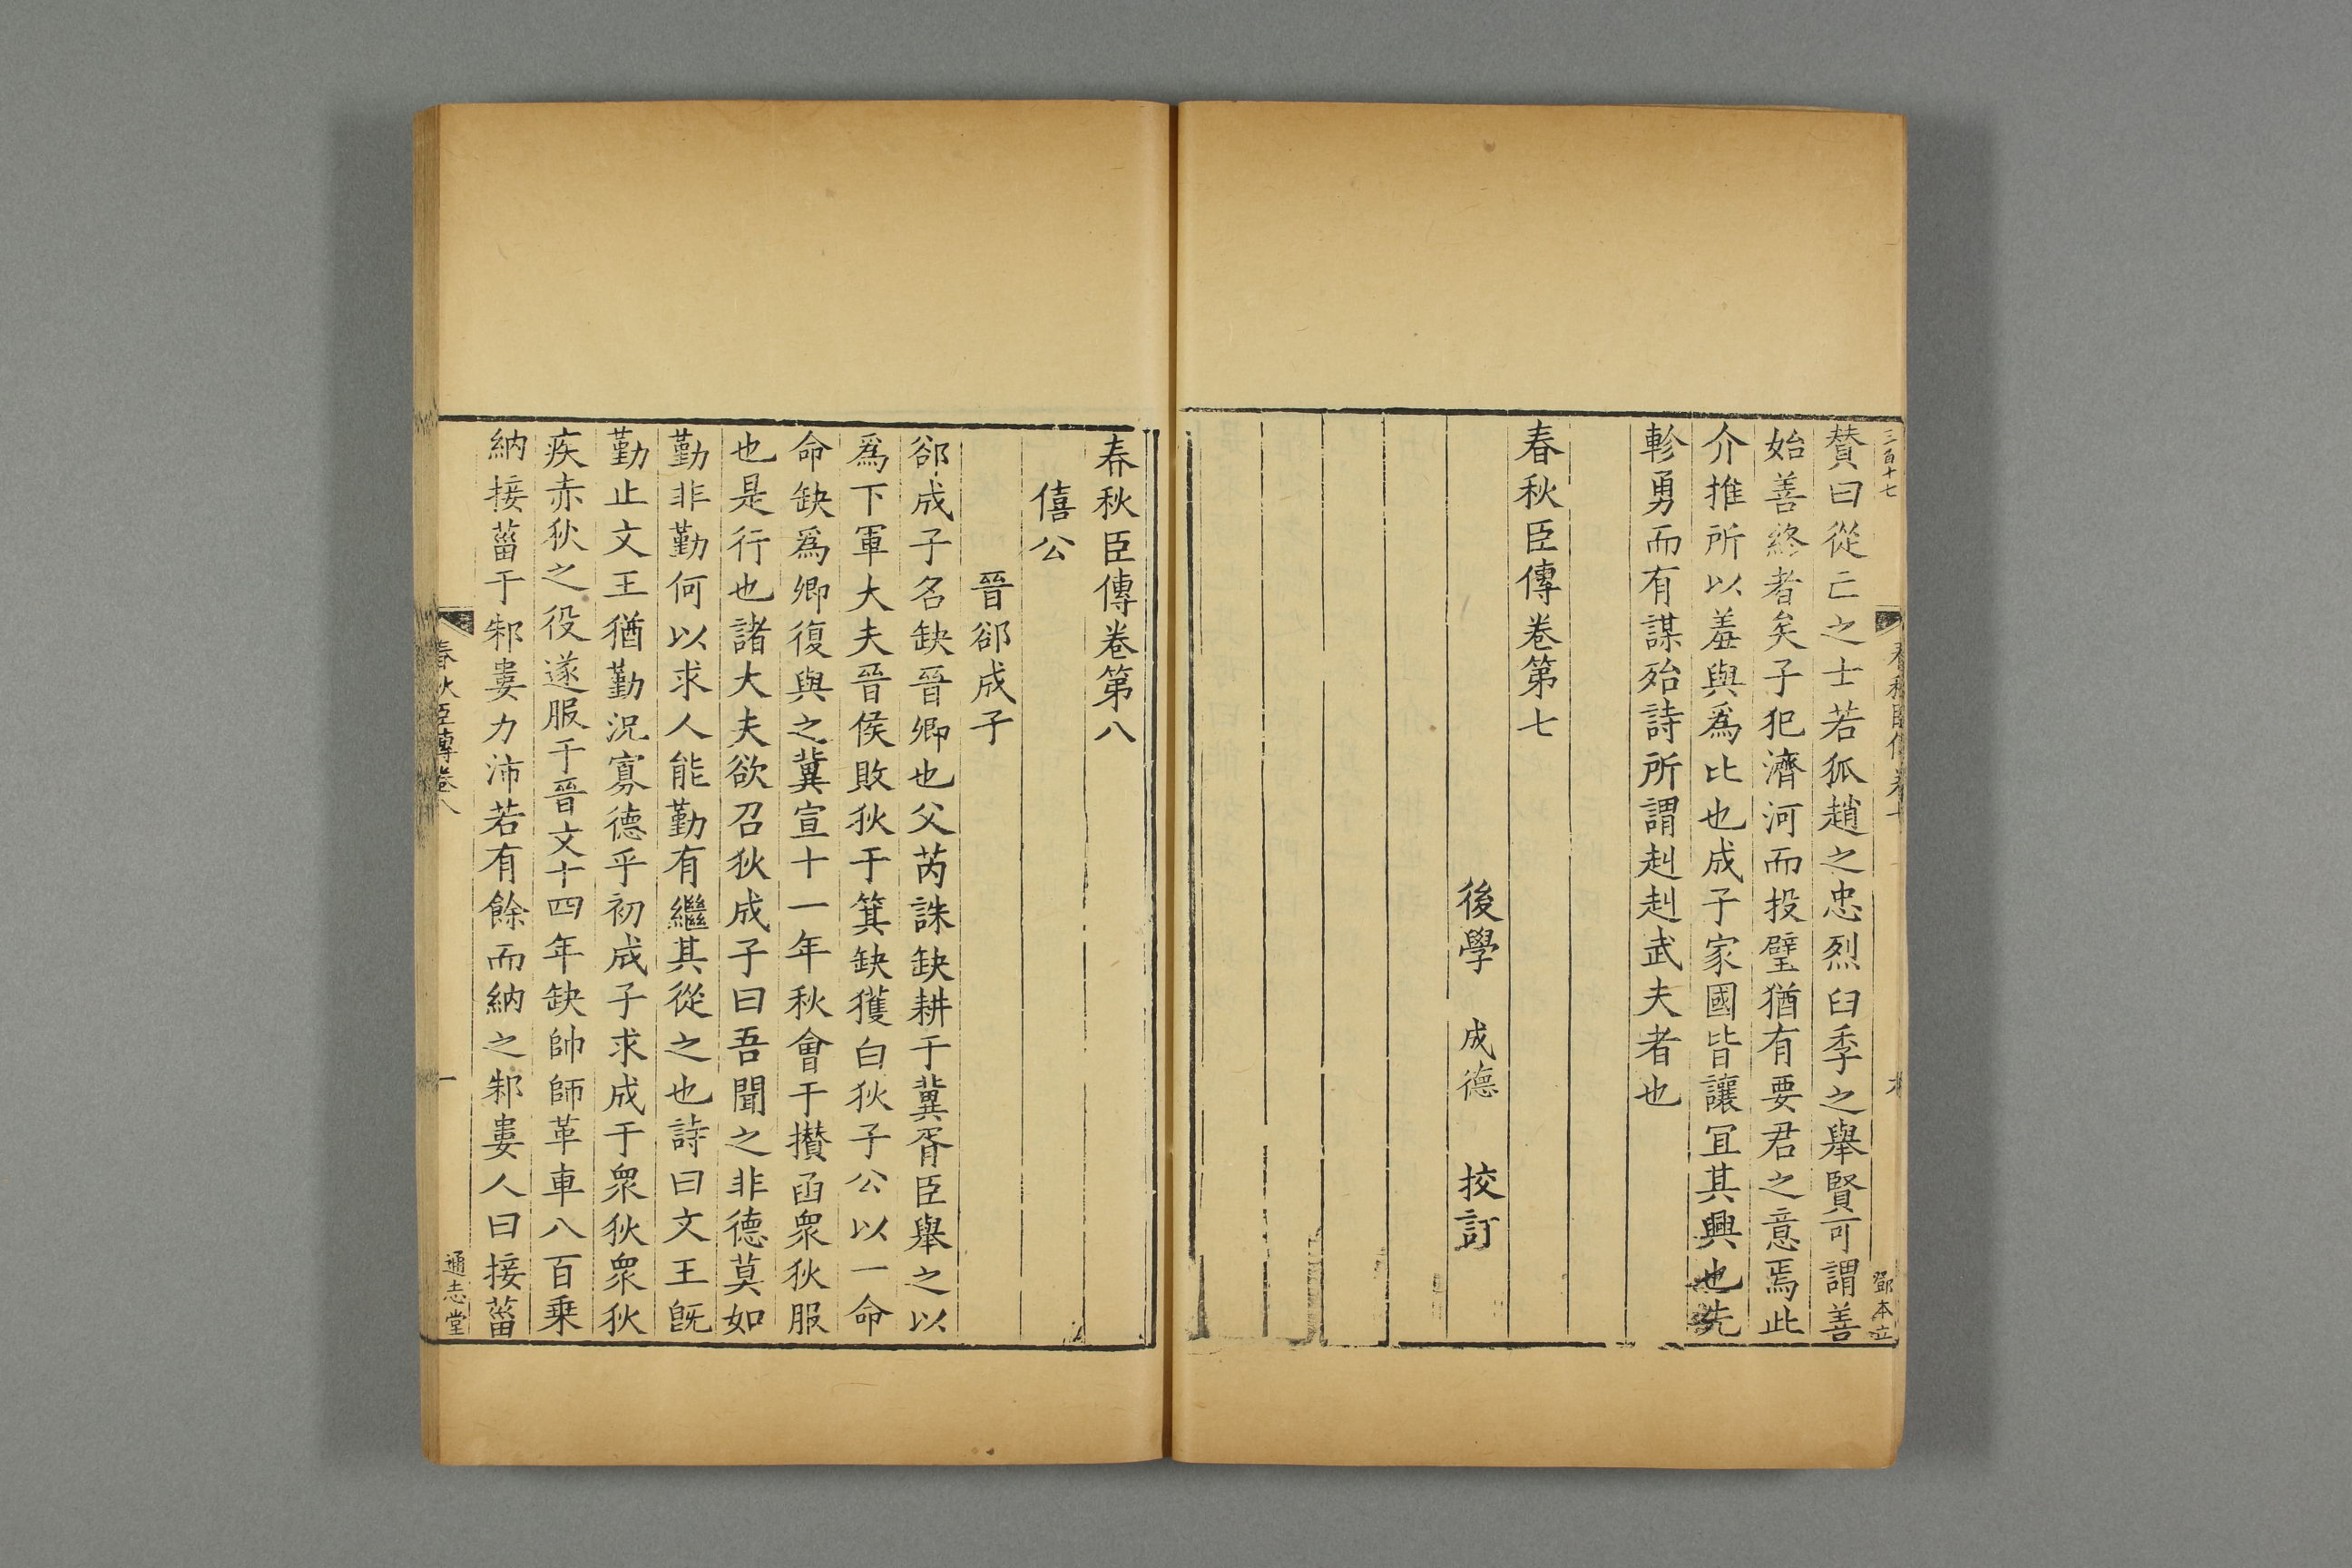 三百十七
鄧本立
賛曰從亡之士若狐趙之忠烈臼季之舉賢可謂善
始善終者矣子犯濟河而投璧猶有要君之意焉此
介推所以羞與爲比也成子家國皆讓冝其興也先
軫勇而有謀殆詩所謂赳赳武夫者也
春秋臣傳卷第七
後學 成德 挍訂
春秋臣傳卷第八
僖公
晉郤成子
郤成子名缺晉卿也父芮誅缺耕于冀胥臣舉之以
爲下軍大夫晉侯敗狄于箕缺獲白狄子公以一命
命缺爲卿復與之冀宣十一年秋會于攅函衆狄服
也是行也諸大夫欲召狄成子曰吾聞之非德莫如
勤非勤何以求人能勤有繼其從之也詩曰文王旣
勤止文王猶勤況寡德乎初成子求成于衆狄衆狄
疾赤狄之役遂服于晉文十四年缺帥師革車八百乗
納接菑于邾婁力沛若有餘而納之邾婁人曰接菑
春秋臣傳卷八 一 通志堂